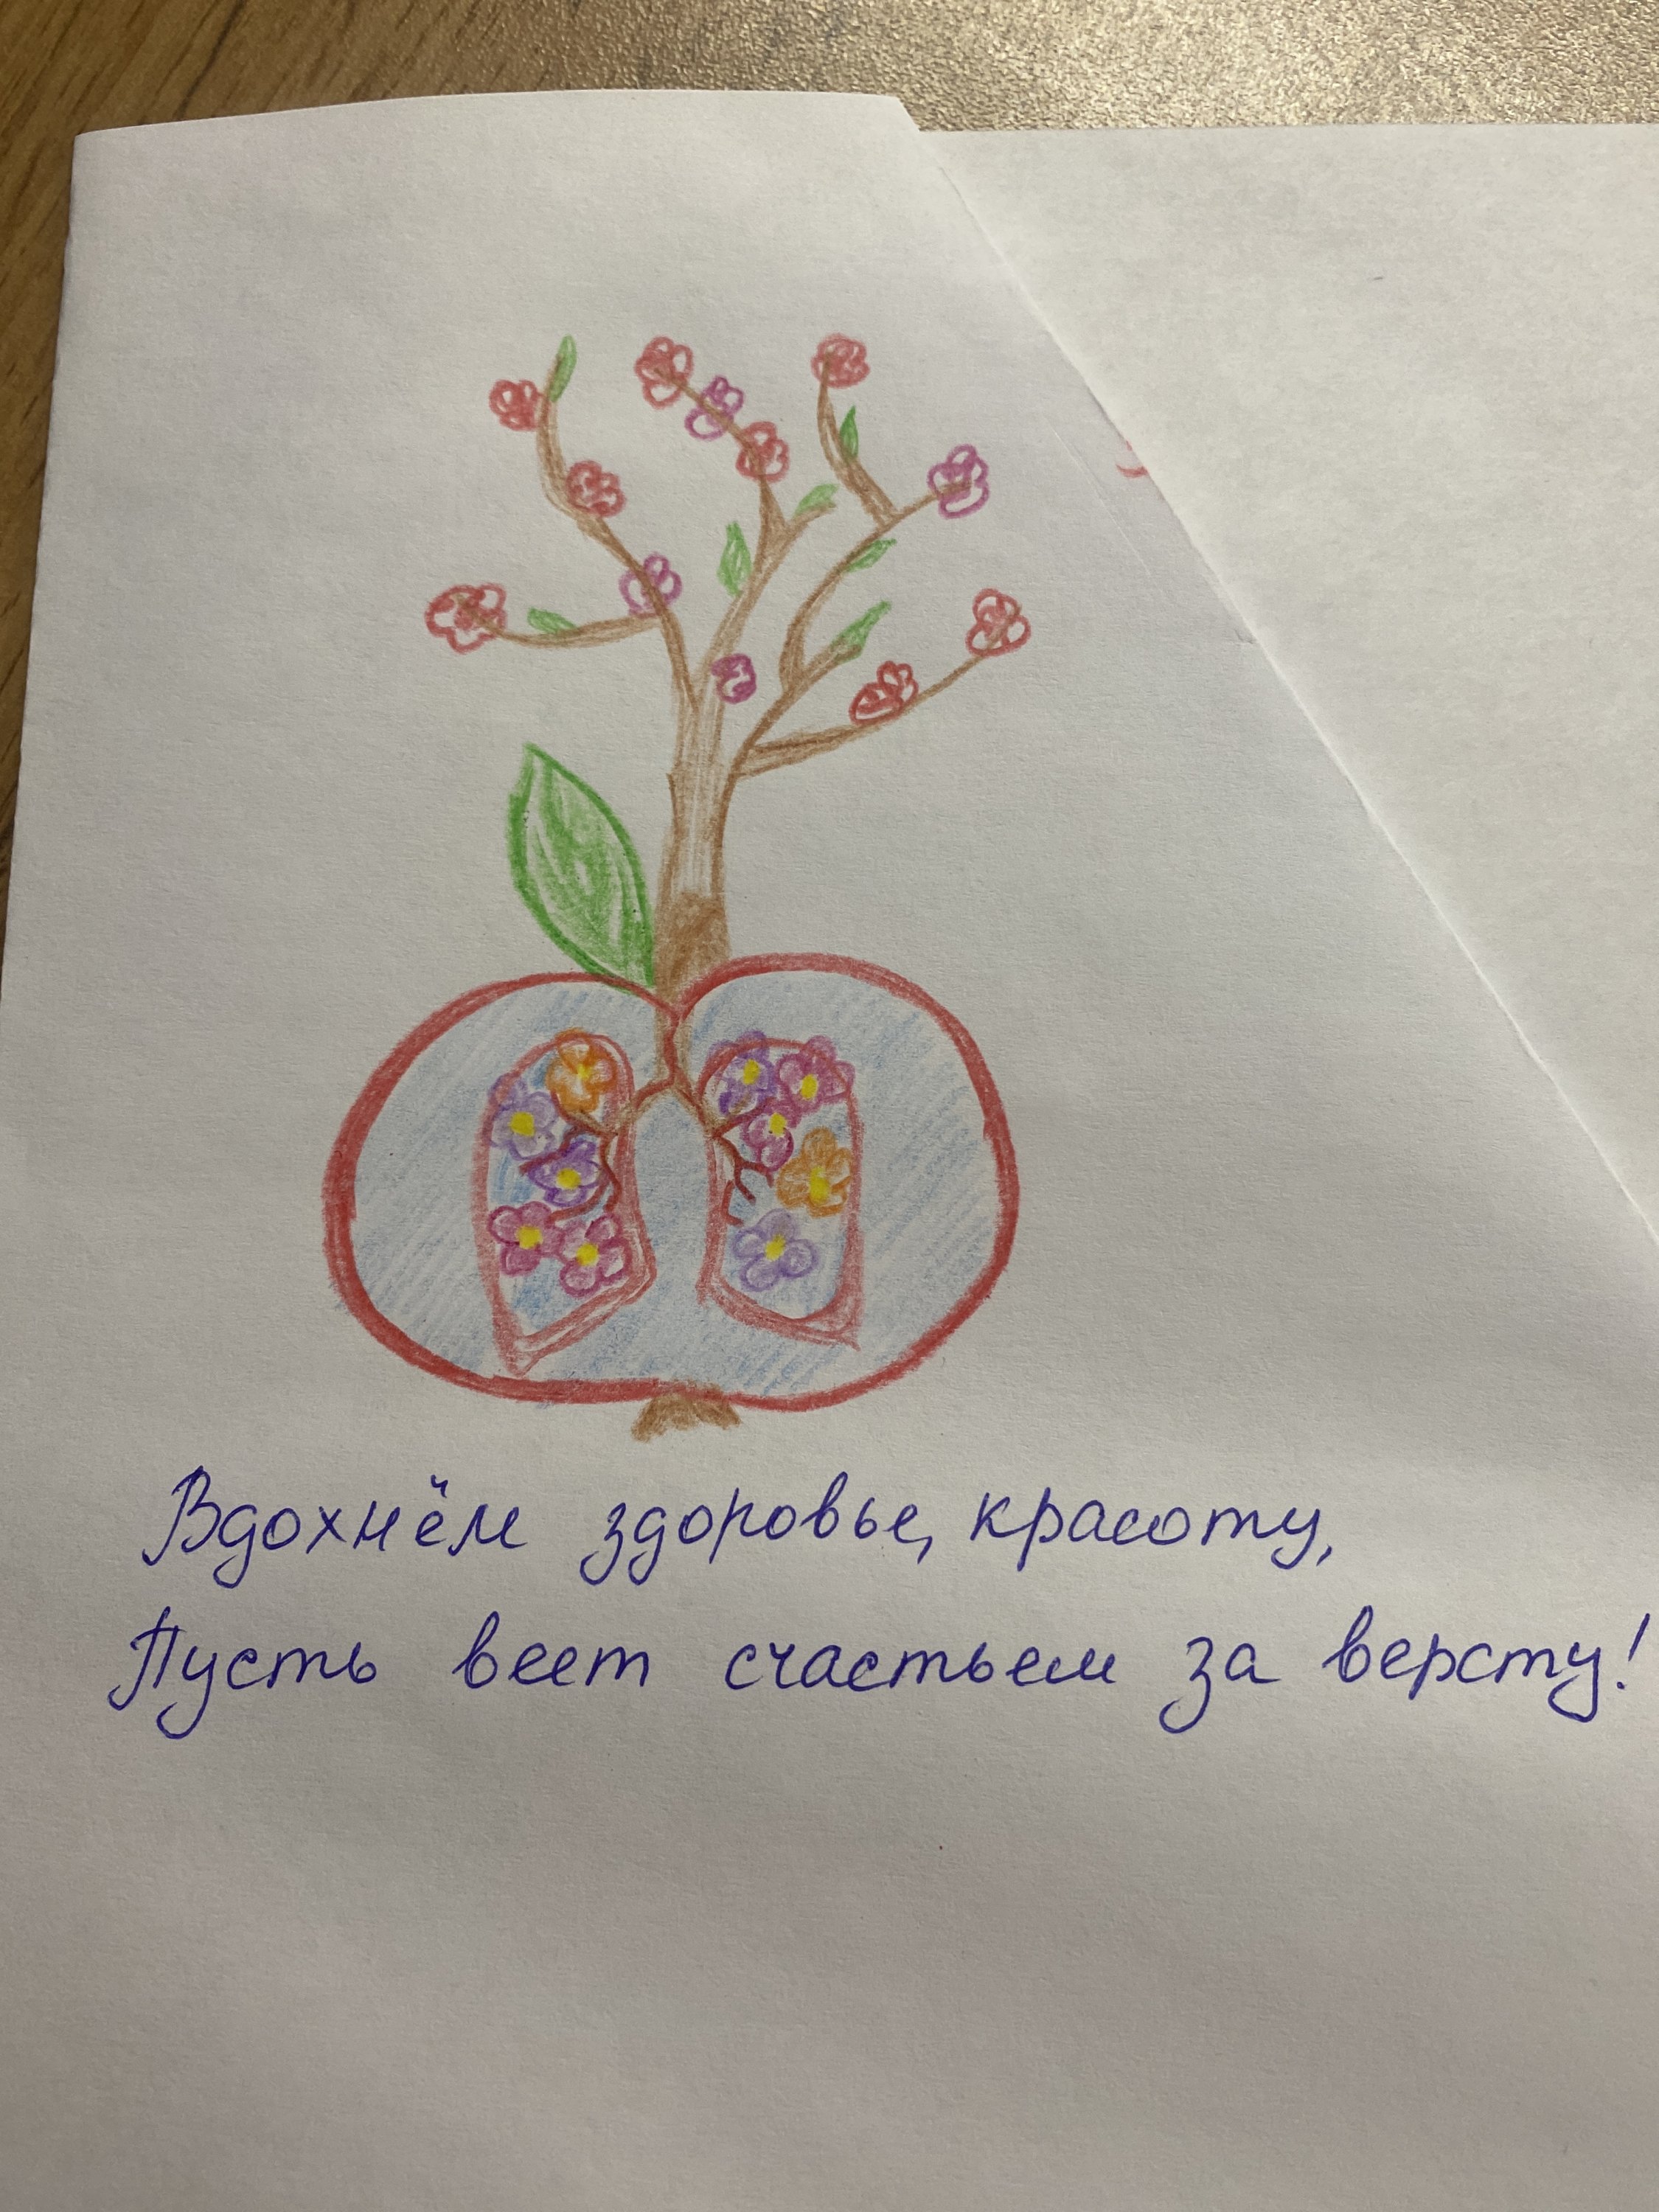 Вдохнём здоровье, красоту,
Пусть веет счастьем за версту!